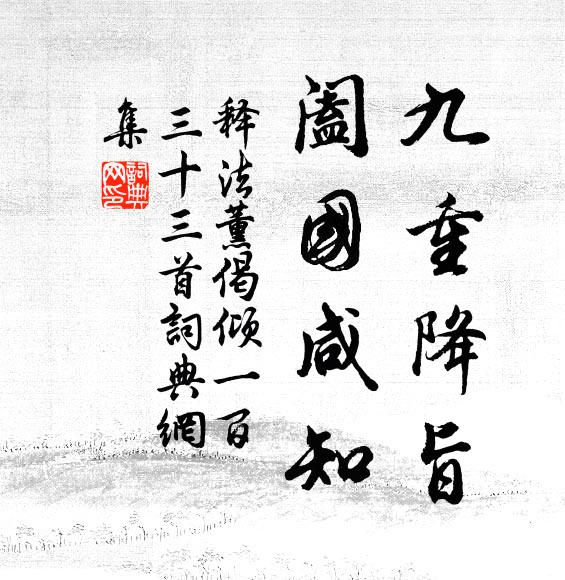 九重降旨
阖國咸知
释法薰偈倾一百
三十三首詞典網
集
詞典
网印